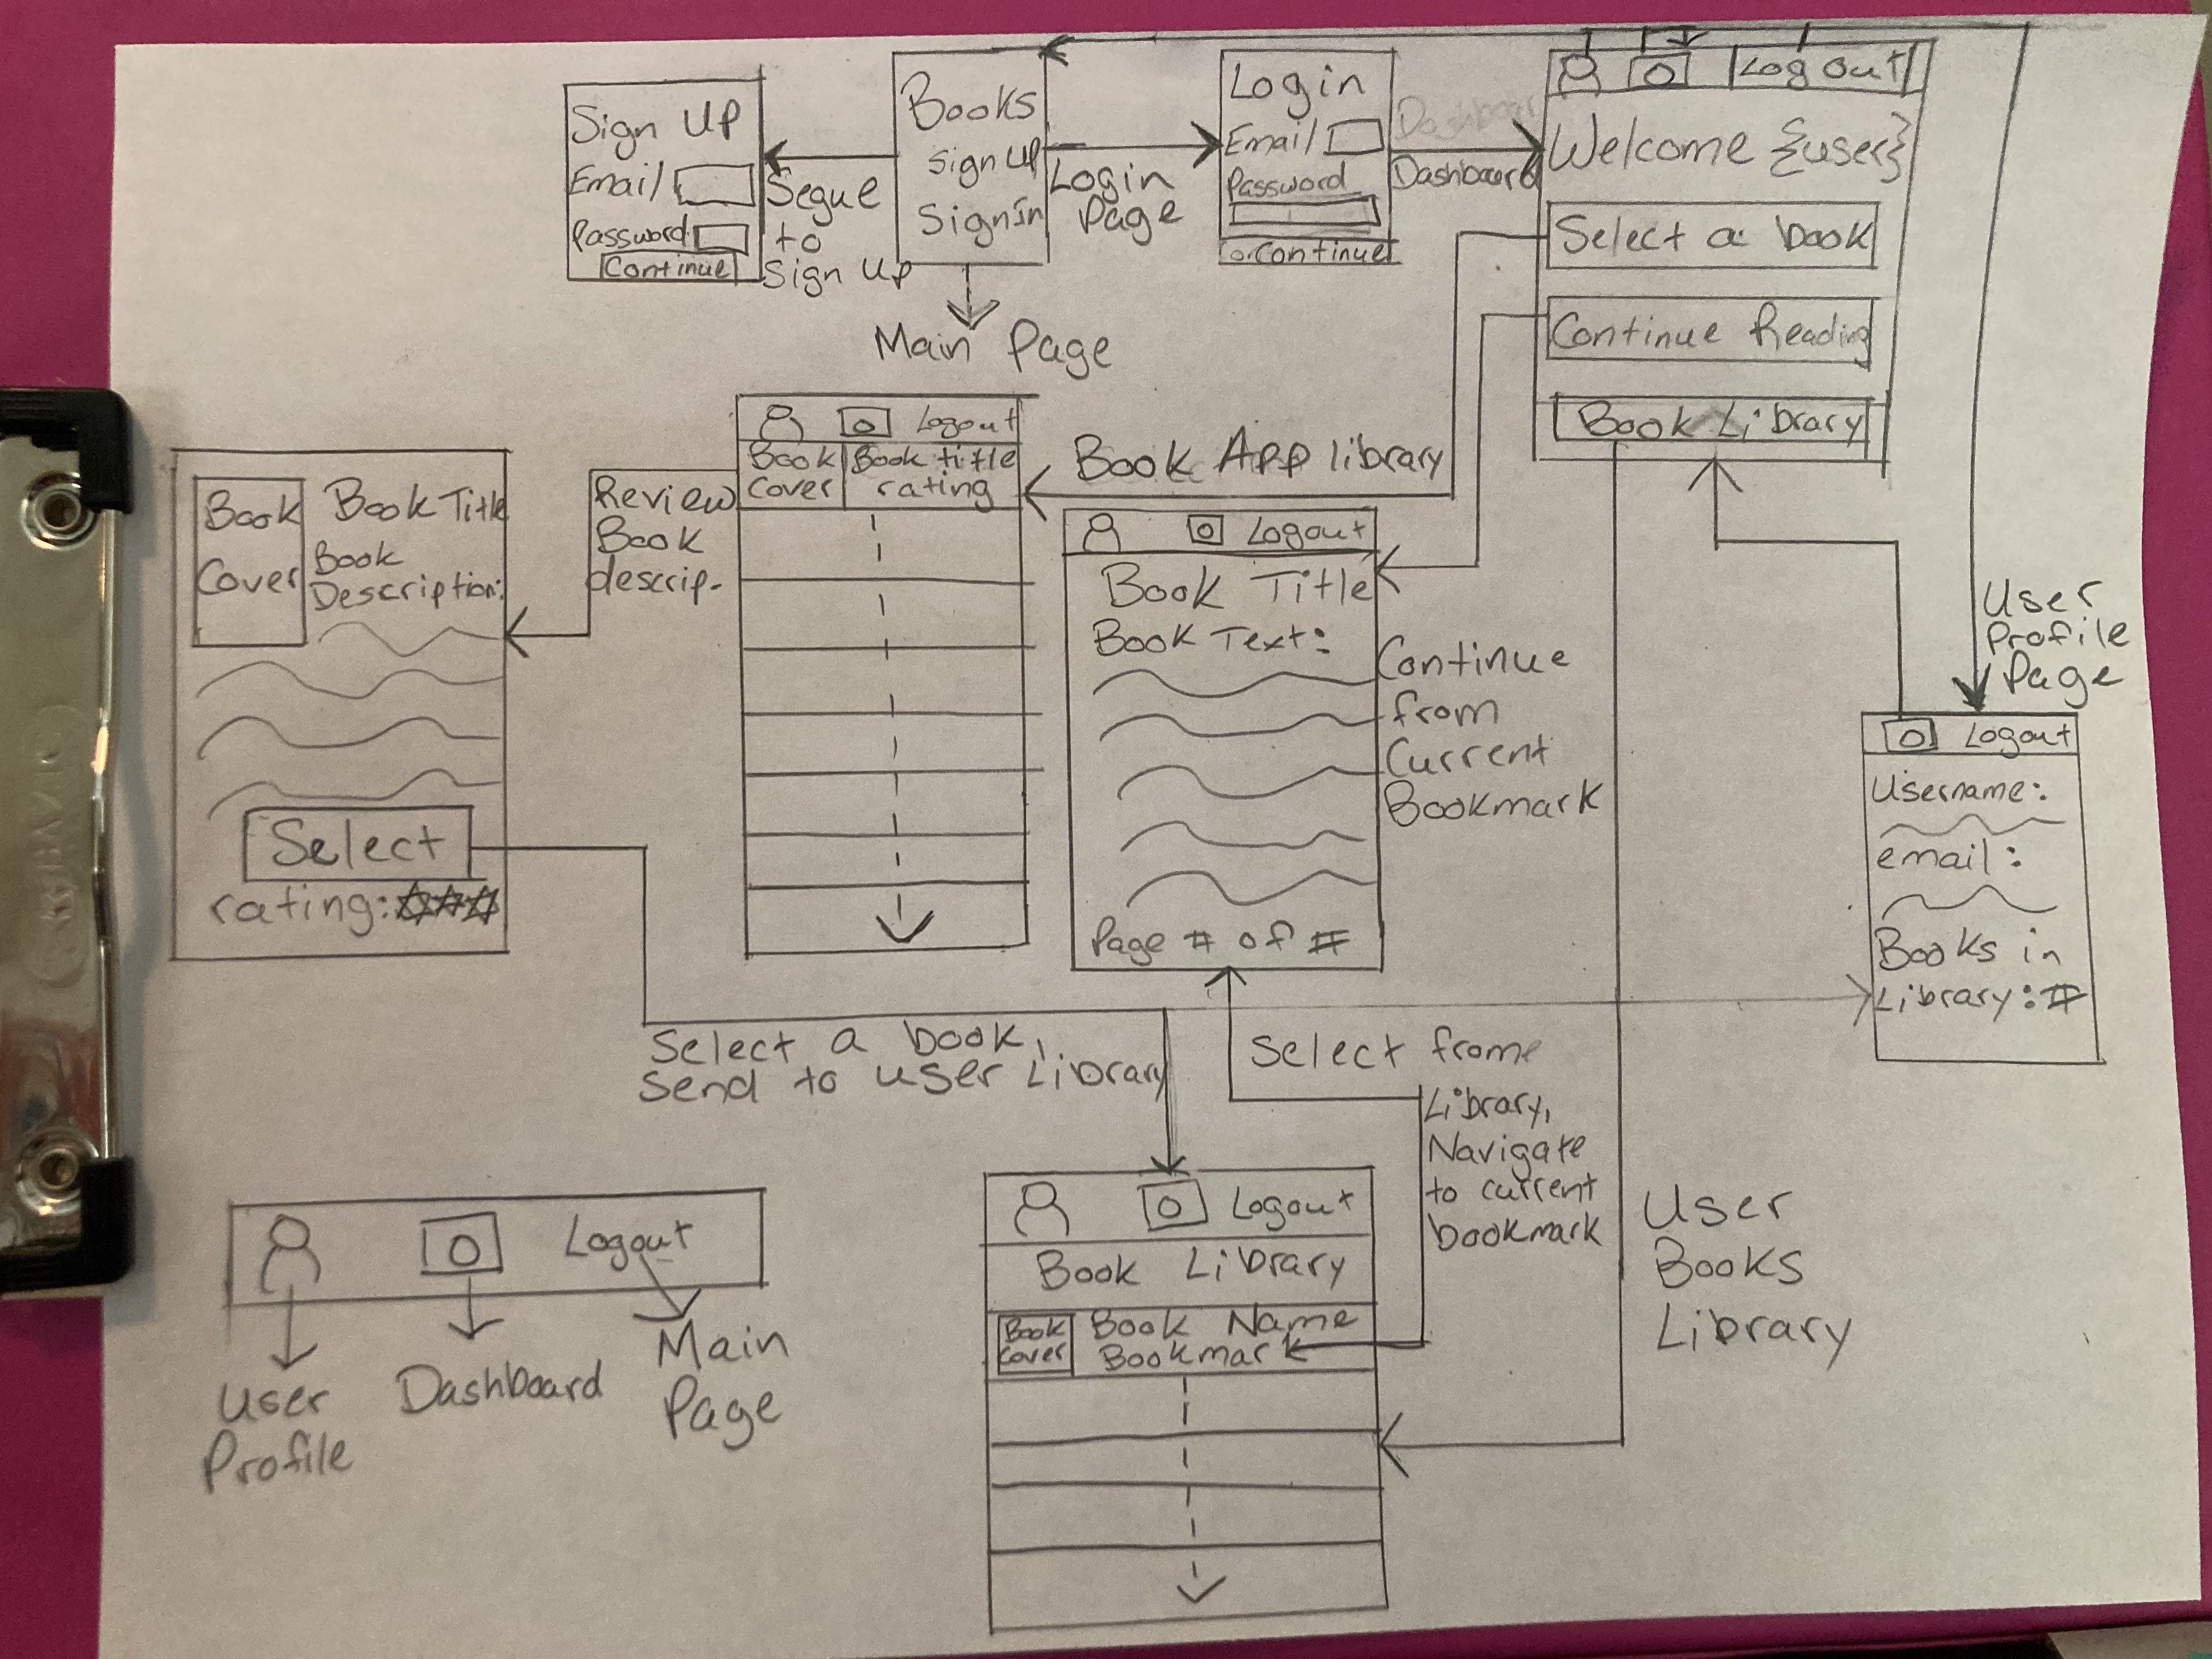 Sign Up
Email
Password:
Continue
Segue
to
Sign Up
Books
Sign Up
Sign In
Main Page
Login
Page
Login
Email
Password
Continue
Dashboard
Dashboard
Log Out
Welcome {user}
Select a book
Continue Reading
Book Library
Book
Cover
Book Title
Book
Description:
Select
rating:
Review
Book
descrip.
Logout
Book
Cover
Book title
rating
Book App library
Logout
Book Title
Book Text:
Page # of #
Continue
from
Current
Bookmark
User
Profile
Page
Logout
Username:
email:
Books in
Library: #
Select a book,
send to user Library
Select frome
Library,
Navigate
to current
bookmark
User
Books
Library
Logout
Book Library
Book
Cover
Book Name
Bookmark
Logout
User
Profile
Dashboard
Main
Page